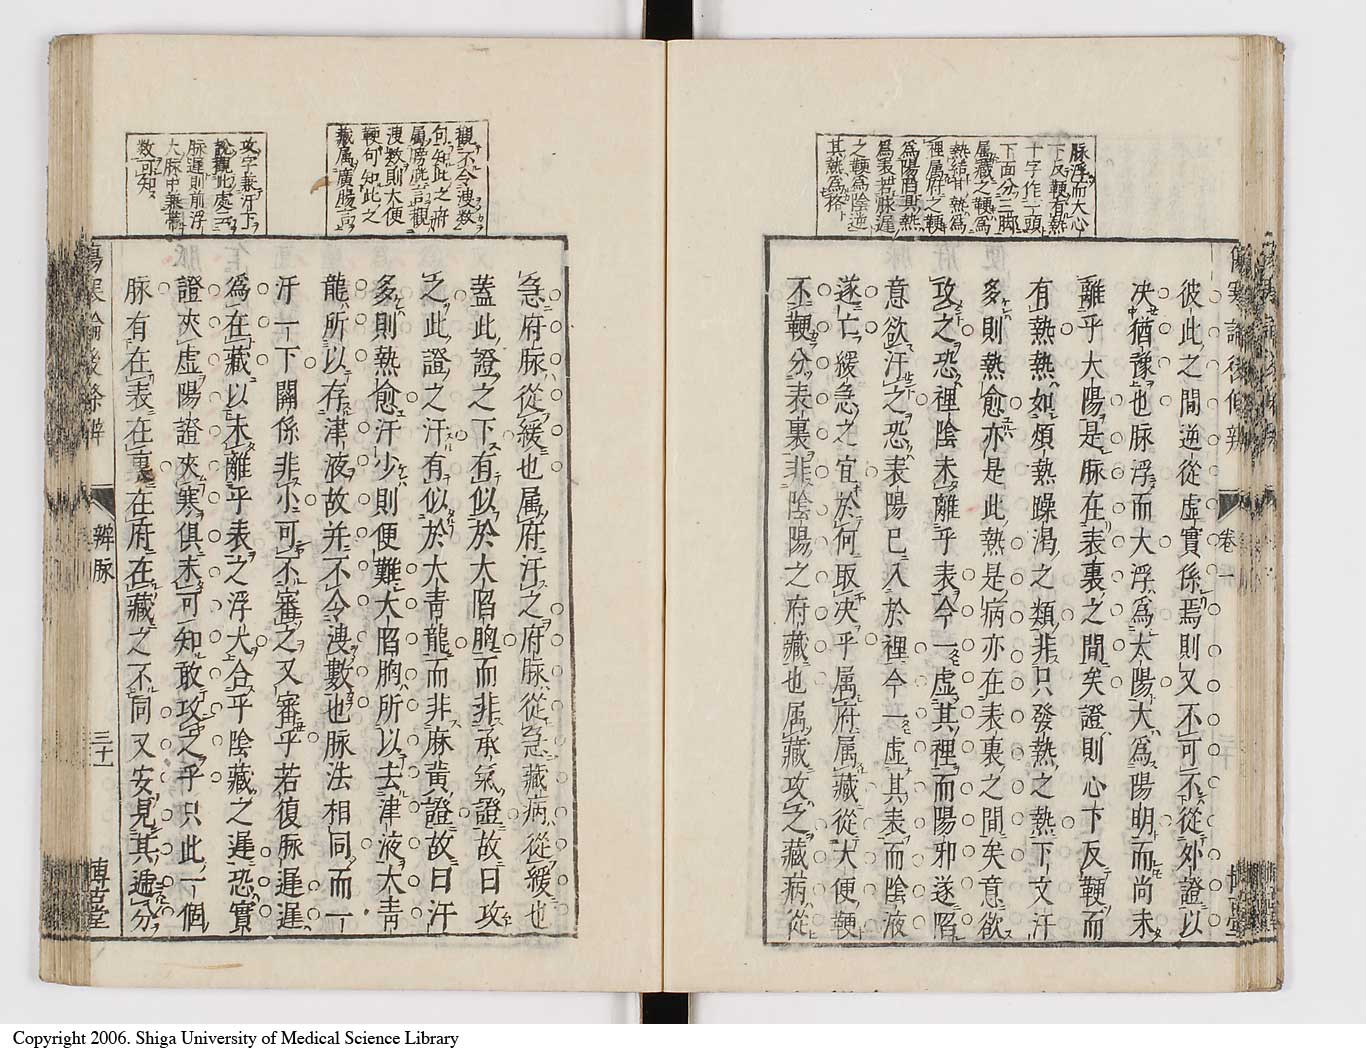 脉浮而大心
下反鞕有熱
十字作一頭
下面分三脚
属藏之鞕爲
熱結甘熱爲
裡属府之鞕
爲陽眉其熱
爲表若脉遲
之鞕爲陰逆
其熱爲格
彼此之間逆從虛實係焉則又不可不從外證以
决猶豫也脉浮而大浮爲太陽大爲陽明而尚未
離乎大陽是脉在表裏之間矣證則心下反鞕而
有熱熱如煩熱躁渴之類非只發熱之熱下文汗
多則熱愈亦是此熱是病亦在表裏之間矣意欲
攻之恐裡陰未離乎表今一虛其裡而陽邪遂陷
意欲汗之恐表陽已入於裡今一虛其表而陰液
遂亡緩急之宜於何取决乎属府属藏從大便鞕
不鞕分表裏非陰陽之府藏也属藏攻之藏病從
傷寒論後條辨
卷一
博古堂
觀不令溲数
句知此之府
属膀胱言觀
溲数則大便
鞕句知此之
藏属廣腸言
攻字兼汗下
說觀此處云
脉遲則前浮
大脉中兼帶
数可知
急府脉從緩也属府汗之府脉從急藏病從緩也
蓋此證之下有似於大陷胸而非承氣證故曰攻
之此證之汗有似於大青龍而非麻黃證故曰汗
多則熱愈汗少則便難大陷胸所以去津液大青
龍所以存津液故并不令溲數也脉法相同而一
汗一下關係非小可不審之又審乎若復脉遲遲
爲在藏以未離乎表之浮大合乎陰藏之遲恐實
證夾虛陽證夾寒俱未可知敢攻之乎只此一個
脉有在表在裏在府在藏之不同又安見其遞分
傷寒論後條辨
辨脉
三十一
博古堂
Copyright 2006. Shiga University of Medical Science Library